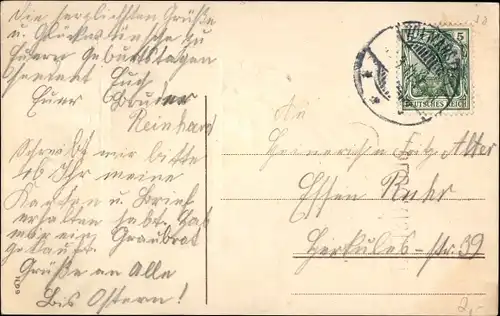 Die herzlichsten Grüße
u. Glückwünsche zu
Eurem Geburtstagen
sendet Euch
Euer Bruder
Reinhard
Schreibt mir bitte
ob Ihr meine
Karten u. Brief
erhalten habt. Hab
mir ein Graubrot
gekauft.
Grüße an Alle
Bis Ostern!
An
Heinr. Fritz Alter
Essen Ruhr
Herkules-str. 39
5
DEUTSCHES REICH
2,-